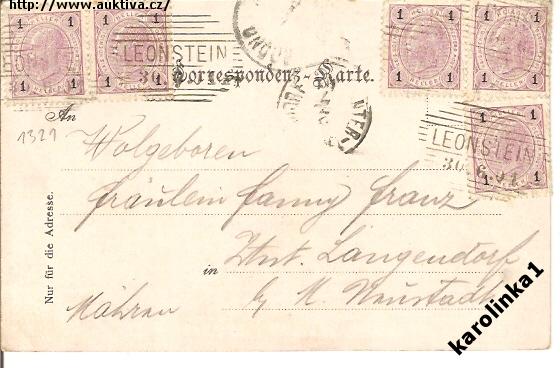 Zdroj: www.auktiva.cz/
1 1 1 1
LEONSTEIN
Correspondenz-Karte.
1 1 1 1
LEONSTEIN
30. 6. 01
1 1
1321
An
Wolgeboren
Fräulein Fanny Franz
in Unt. Langendorf
b/ M. Neustadt
Mähren
Nur für die Adresse.
karolinka1